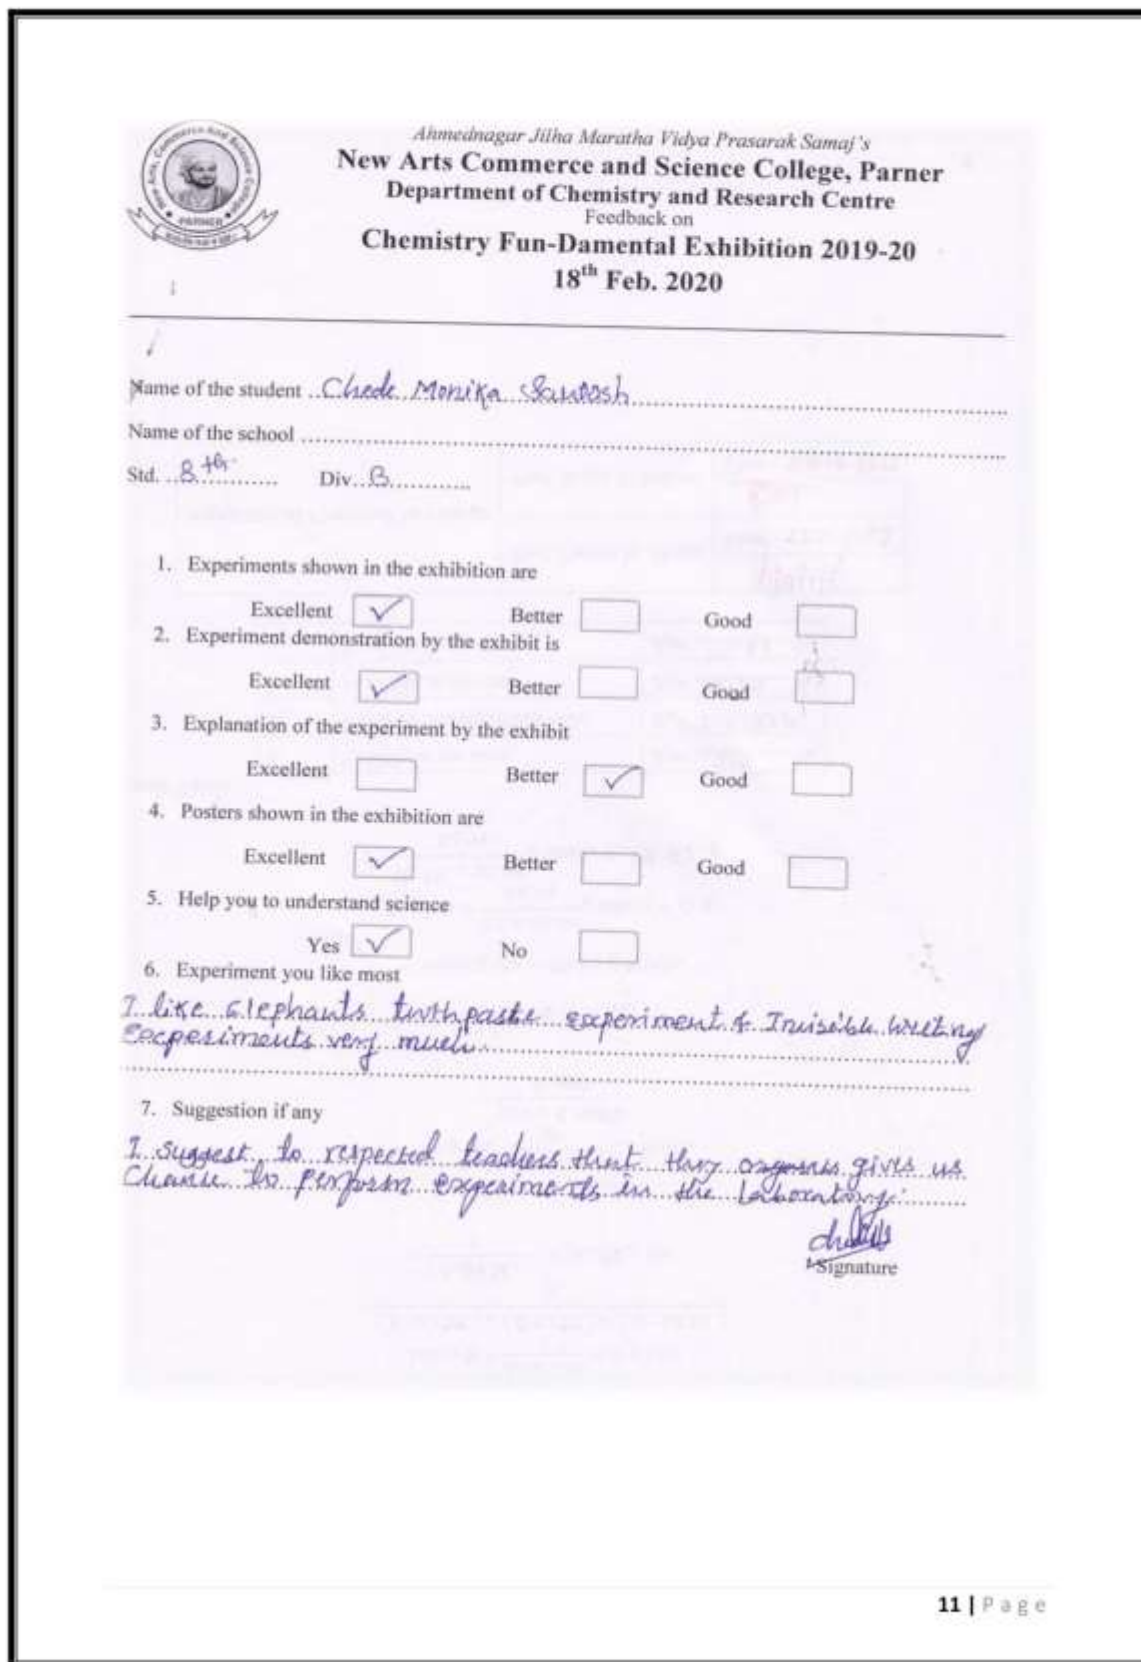 Ahmednagar Jilha Maratha Vidya Prasarak Samaj's
New Arts Commerce and Science College, Parner
Department of Chemistry and Research Centre
Feedback on
Chemistry Fun-Damental Exhibition 2019-20
18th Feb. 2020
PARNER
Name of the student Chede Monika Santosh
Name of the school
Std. 8th Div. B
1. Experiments shown in the exhibition are
Excellent ✓ Better Good
2. Experiment demonstration by the exhibit is
Excellent ✓ Better Good
3. Explanation of the experiment by the exhibit
Excellent Better ✓ Good
4. Posters shown in the exhibition are
Excellent ✓ Better Good
5. Help you to understand science
Yes ✓ No
6. Experiment you like most
I like Elephants tuthpaste experiment & Invisible writing
Eecperiments very much.
7. Suggestion if any
I suggest to respected teachers that they gives us
Chance to perform experiments in the laboratory.
Signature
11 | Page